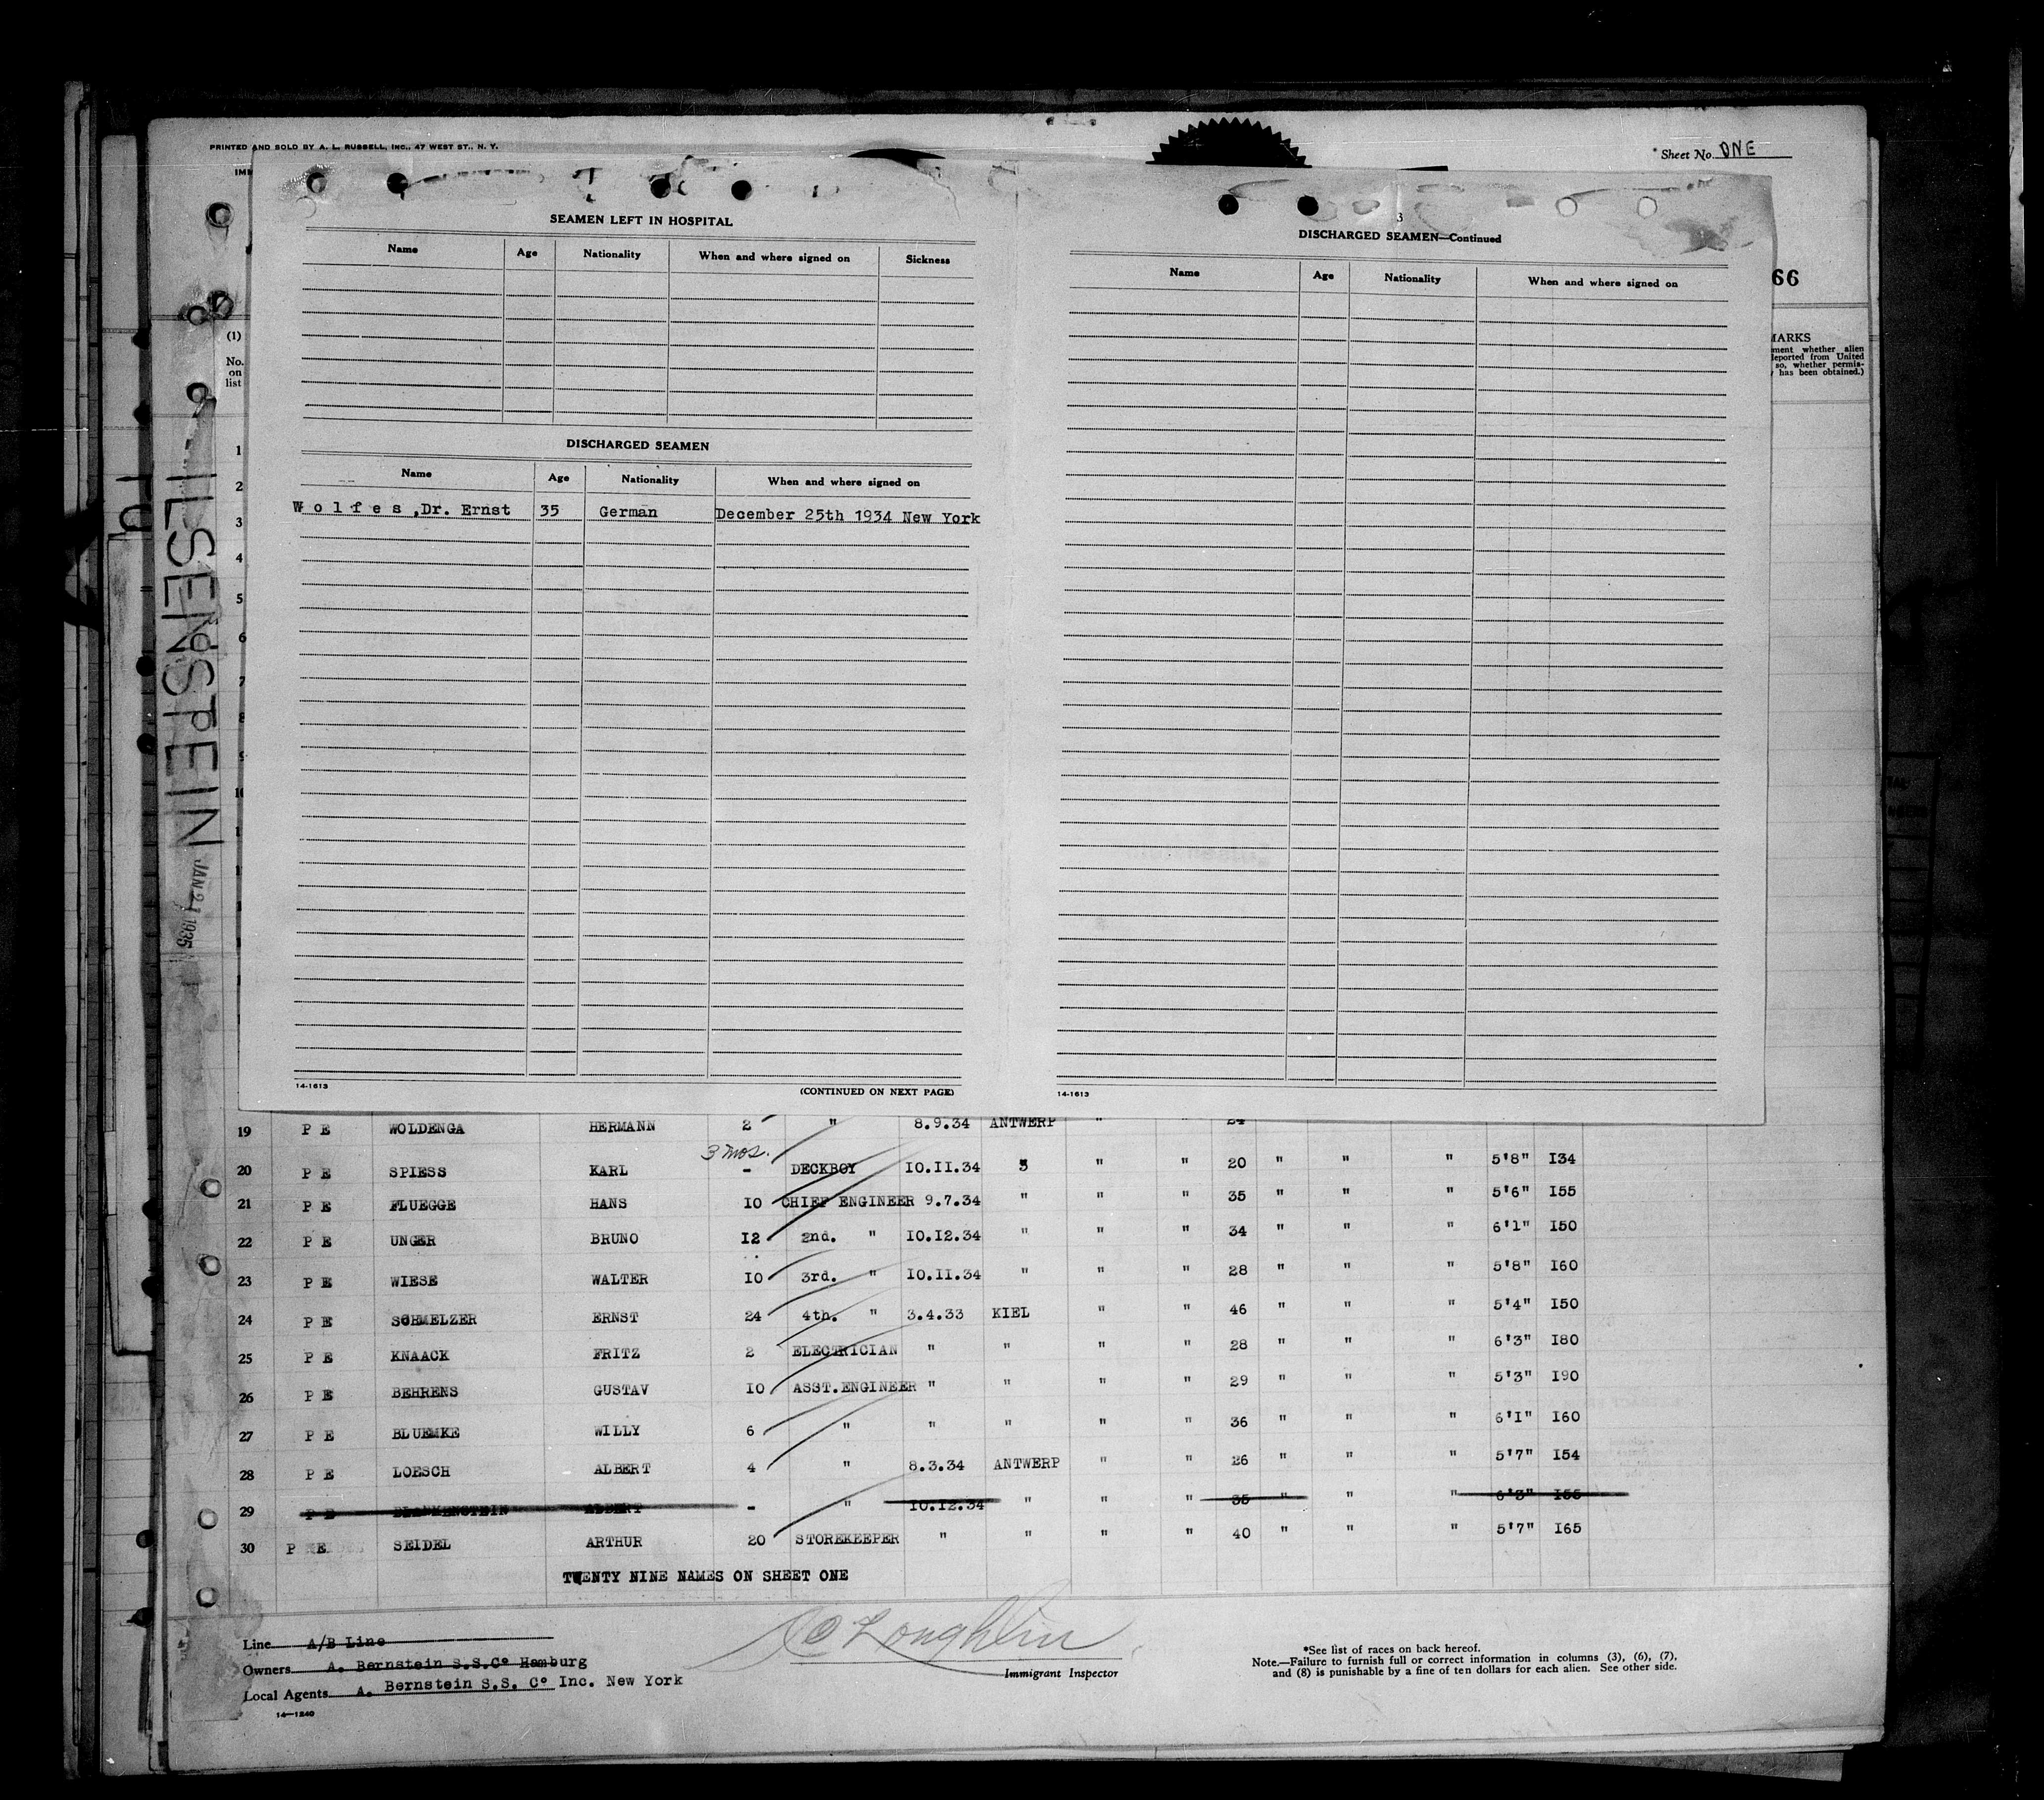 PRINTED AND SOLD BY A. L. RUSSELL, INC., 47 WEST ST., N. Y.
* Sheet No. ONE
IMM
66
(1)
No. on list
MARKS
ment whether alien
deported from United
so, whether permis-
has been obtained.)
ILSENSTEIN
JAN 21 1935
SEAMEN LEFT IN HOSPITAL
Name Age Nationality When and where signed on Sickness
DISCHARGED SEAMEN
Name Age Nationality When and where signed on
W o l f e s ,Dr. Ernst 35 German December 25th 1934 New York
14-1613 (CONTINUED ON NEXT PAGE)
3
DISCHARGED SEAMEN—Continued
Name Age Nationality When and where signed on
14-1613
1
2
3
4
5
6
7
8
9
19 P E WOLDENGA HERMANN 2 " 8.9.34 ANTWERP " " 24
3 mos.
20 P E SPIESS KARL - DECKBOY 10.II.34 " " " 20 " " " 5'8" I34
21 P E FLUEGGE HANS IO CHIEF ENGINEER 9.7.34 " " " 35 " " " 5'6" I55
22 P E UNGER BRUNO I2 2nd. " 10.I2.34 " " " 34 " " " 6'1" I50
23 P E WIESE WALTER IO 3rd. " 10.II.34 " " " 28 " " " 5'8" I60
24 P E SCHMELZER ERNST 24 4th. " 3.4.33 KIEL " " 46 " " " 5'4" I50
25 P E KNAACK FRITZ 2 ELECTRICIAN " " " " 28 " " " 6'3" I80
26 P E BEHRENS GUSTAV IO ASST.ENGINEER " " " " 29 " " " 5'3" I90
27 P E BLUEMKE WILLY 6 " " " " " 36 " " " 6'I" I60
28 P E LOESCH ALBERT 4 " 8.3.34 ANTWERP " " 26 " " " 5'7" I54
29 P E BLANKENSTEIN ALBERT - " 10.I2.34 " " " 35 " " " 6'3" I55
30 P E SEIDEL ARTHUR 20 STOREKEEPER " " " " 40 " " " 5'7" I65
TWENTY NINE NAMES ON SHEET ONE
Line A/B Line
Owners A. Bernstein S.S.Co Hamburg
Local Agents A. Bernstein S.S. Co Inc. New York
14—1240
Immigrant Inspector
*See list of races on back hereof.
Note.—Failure to furnish full or correct information in columns (3), (6), (7),
and (8) is punishable by a fine of ten dollars for each alien. See other side.